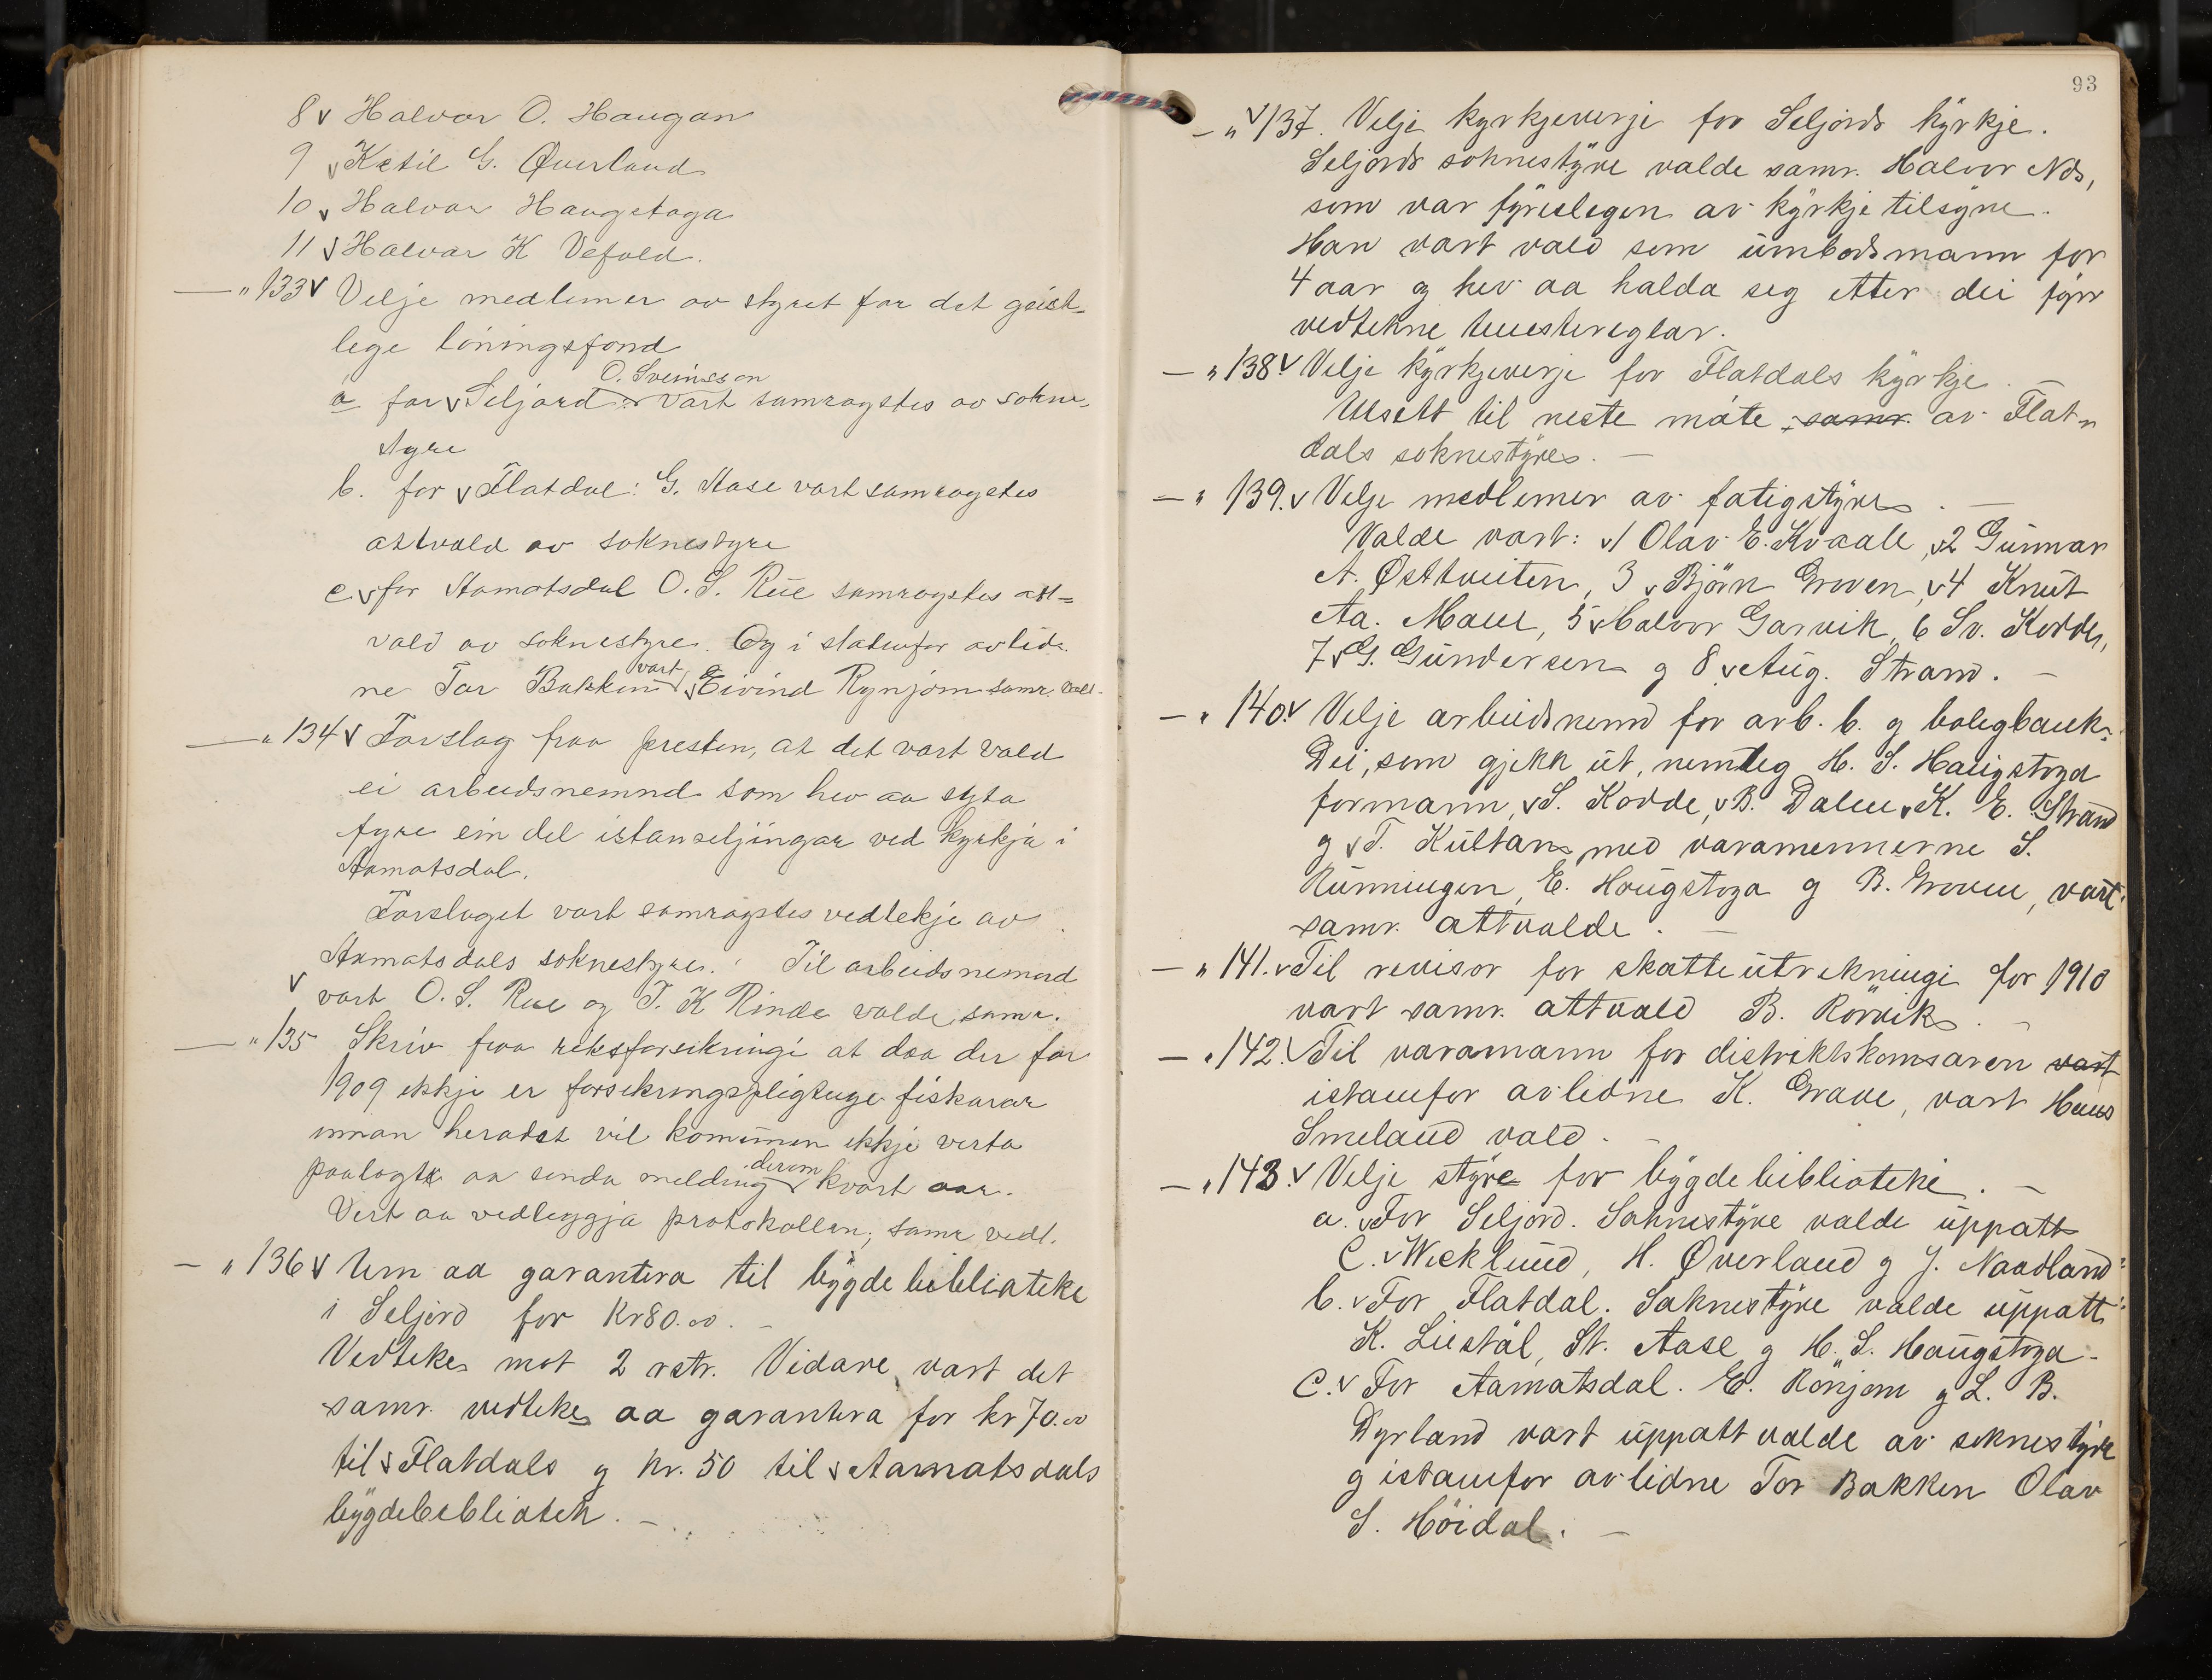 8 v Halvor O. Haugan
9 v Ketil G. Øverland
10 v Halvor Haugstoga
11 v Halvor K Vefald.
— " 133 v Velje medlemer av styret for det geist-
lege löningsfond
O. Sveinsson
a for v Seljord: vart samrøystes av sokne-
styre
b. for v Flatdal: G. Aase vart samrøystes
attvald av soknestyre
c. v for Aamotsdal O. S. Rue samrøystes att=
vald av soknestyre. Og i stadenfor avlid-
ne Tor Bakken vart v Eivind Rynjom samr. vald.
— " 134 v Forslag fraa presten, at det vart vald
ei arbeidsnemnd som hev aa syta
fyre ein del istanseljingar ved kyrkja i
Aamotsdal.
Forslaget vart samrøystes vedtekje av
Aamotsdals soknestyre. Til arbeidsnemnd
v vart O. S. Rue og T. K Rinde valde samr.
— " 135 Skriv fraa riksforsikringi at daa der for
1909 ikkje er forsikringspligtuge fiskarar
innan heradet vil komunen ikkje verta
paalagt aa senda melding derom kvart aar.
Vert aa vedleggja protokollen; samr vedt.
— " 136 v Um aa garantera til bygdebiblioteke
i Seljord for Kr 80.00. –
Vedteke mot 2 rstr. Vidare vart det
samr. vedteke aa garantera for kr 70.00
til v Flatdals og kr. 50 til v Aamotsdals
bygdebibliotek. –
93
— " v 137. Velje kyrkjeverje for Seljords kyrkje.
Seljords soknestyre valde samr. Halvor Nös,
som var fyreslegen av kyrkjetilsyne.
Han vart vald som umbodsmann for
4 aar og hev aa halda seg etter dei fyrr
vedtekne tenestereglar.
— " 138 v Velje kyrkjeverje for Flatdals kyrkje. –
Utsett til neste möte samr. av Flat-
dals soknestyre. –
— " 139. v Velje medlemer av fatigstyre. –
Valde vart: v 1 Olav E. Kvaale, v 2 Gunnar
A. Østtveiten, 3 v Björn Groven, v 4 Knut
Aa. Moen, 5 v Halvor Garvik, 6 Sv. Kodde,
7 v G. Gundersen og 8 v Aug. Strand. –
— " 140. v Velje arbeidsnemd for arb. b. og boligbank.
Dei, som gjekk ut, nemleg H. S. Haugstoga
formann, v S. Kodde, v B. Dalen, v K. E. Strand
og v T. Kultan, med varamennerne S.
Runningen, E. Haugstoga og B. Groven, vart
samr. attvalde. –
— " 141. v Til revisor for skatteutrekningi for 1910
vart samr. attvald B. Rorvik. –
— " 142. v Til varamann for distriktskomsaren vart
istaenfor avlidne K. Grave, vart Hans
Smeland vald. –
— " 143. v Velje styre for bygdebiblioteki. –
a. v For Seljord. Soknestyre valde uppatt
C. v Wicklund, H. Øverland og J. Naadland
b. v For Flatdal. Soknestyre valde uppatt:
K. Liestöl, St. Aase og H. S. Haugstoga –
c. v For Aamotsdal. E. Rönjom og L. B.
Dyrland vart uppatt valde av soknestyre
og istaenfor avlidne Tor Bakken Olav
S. Höidal. –